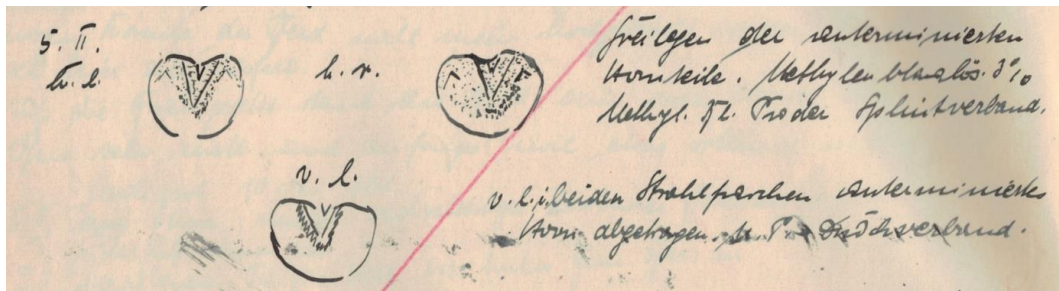 5. II.
h. l.
h. r.
Freilegen der unterminierten
Hornteile. Methylenblaulös. 3%
Methyl. Splintverband.
v. l.
v. l. i. beiden Strahlfurchen unterminiertes
Horn abgetragen. u. T.